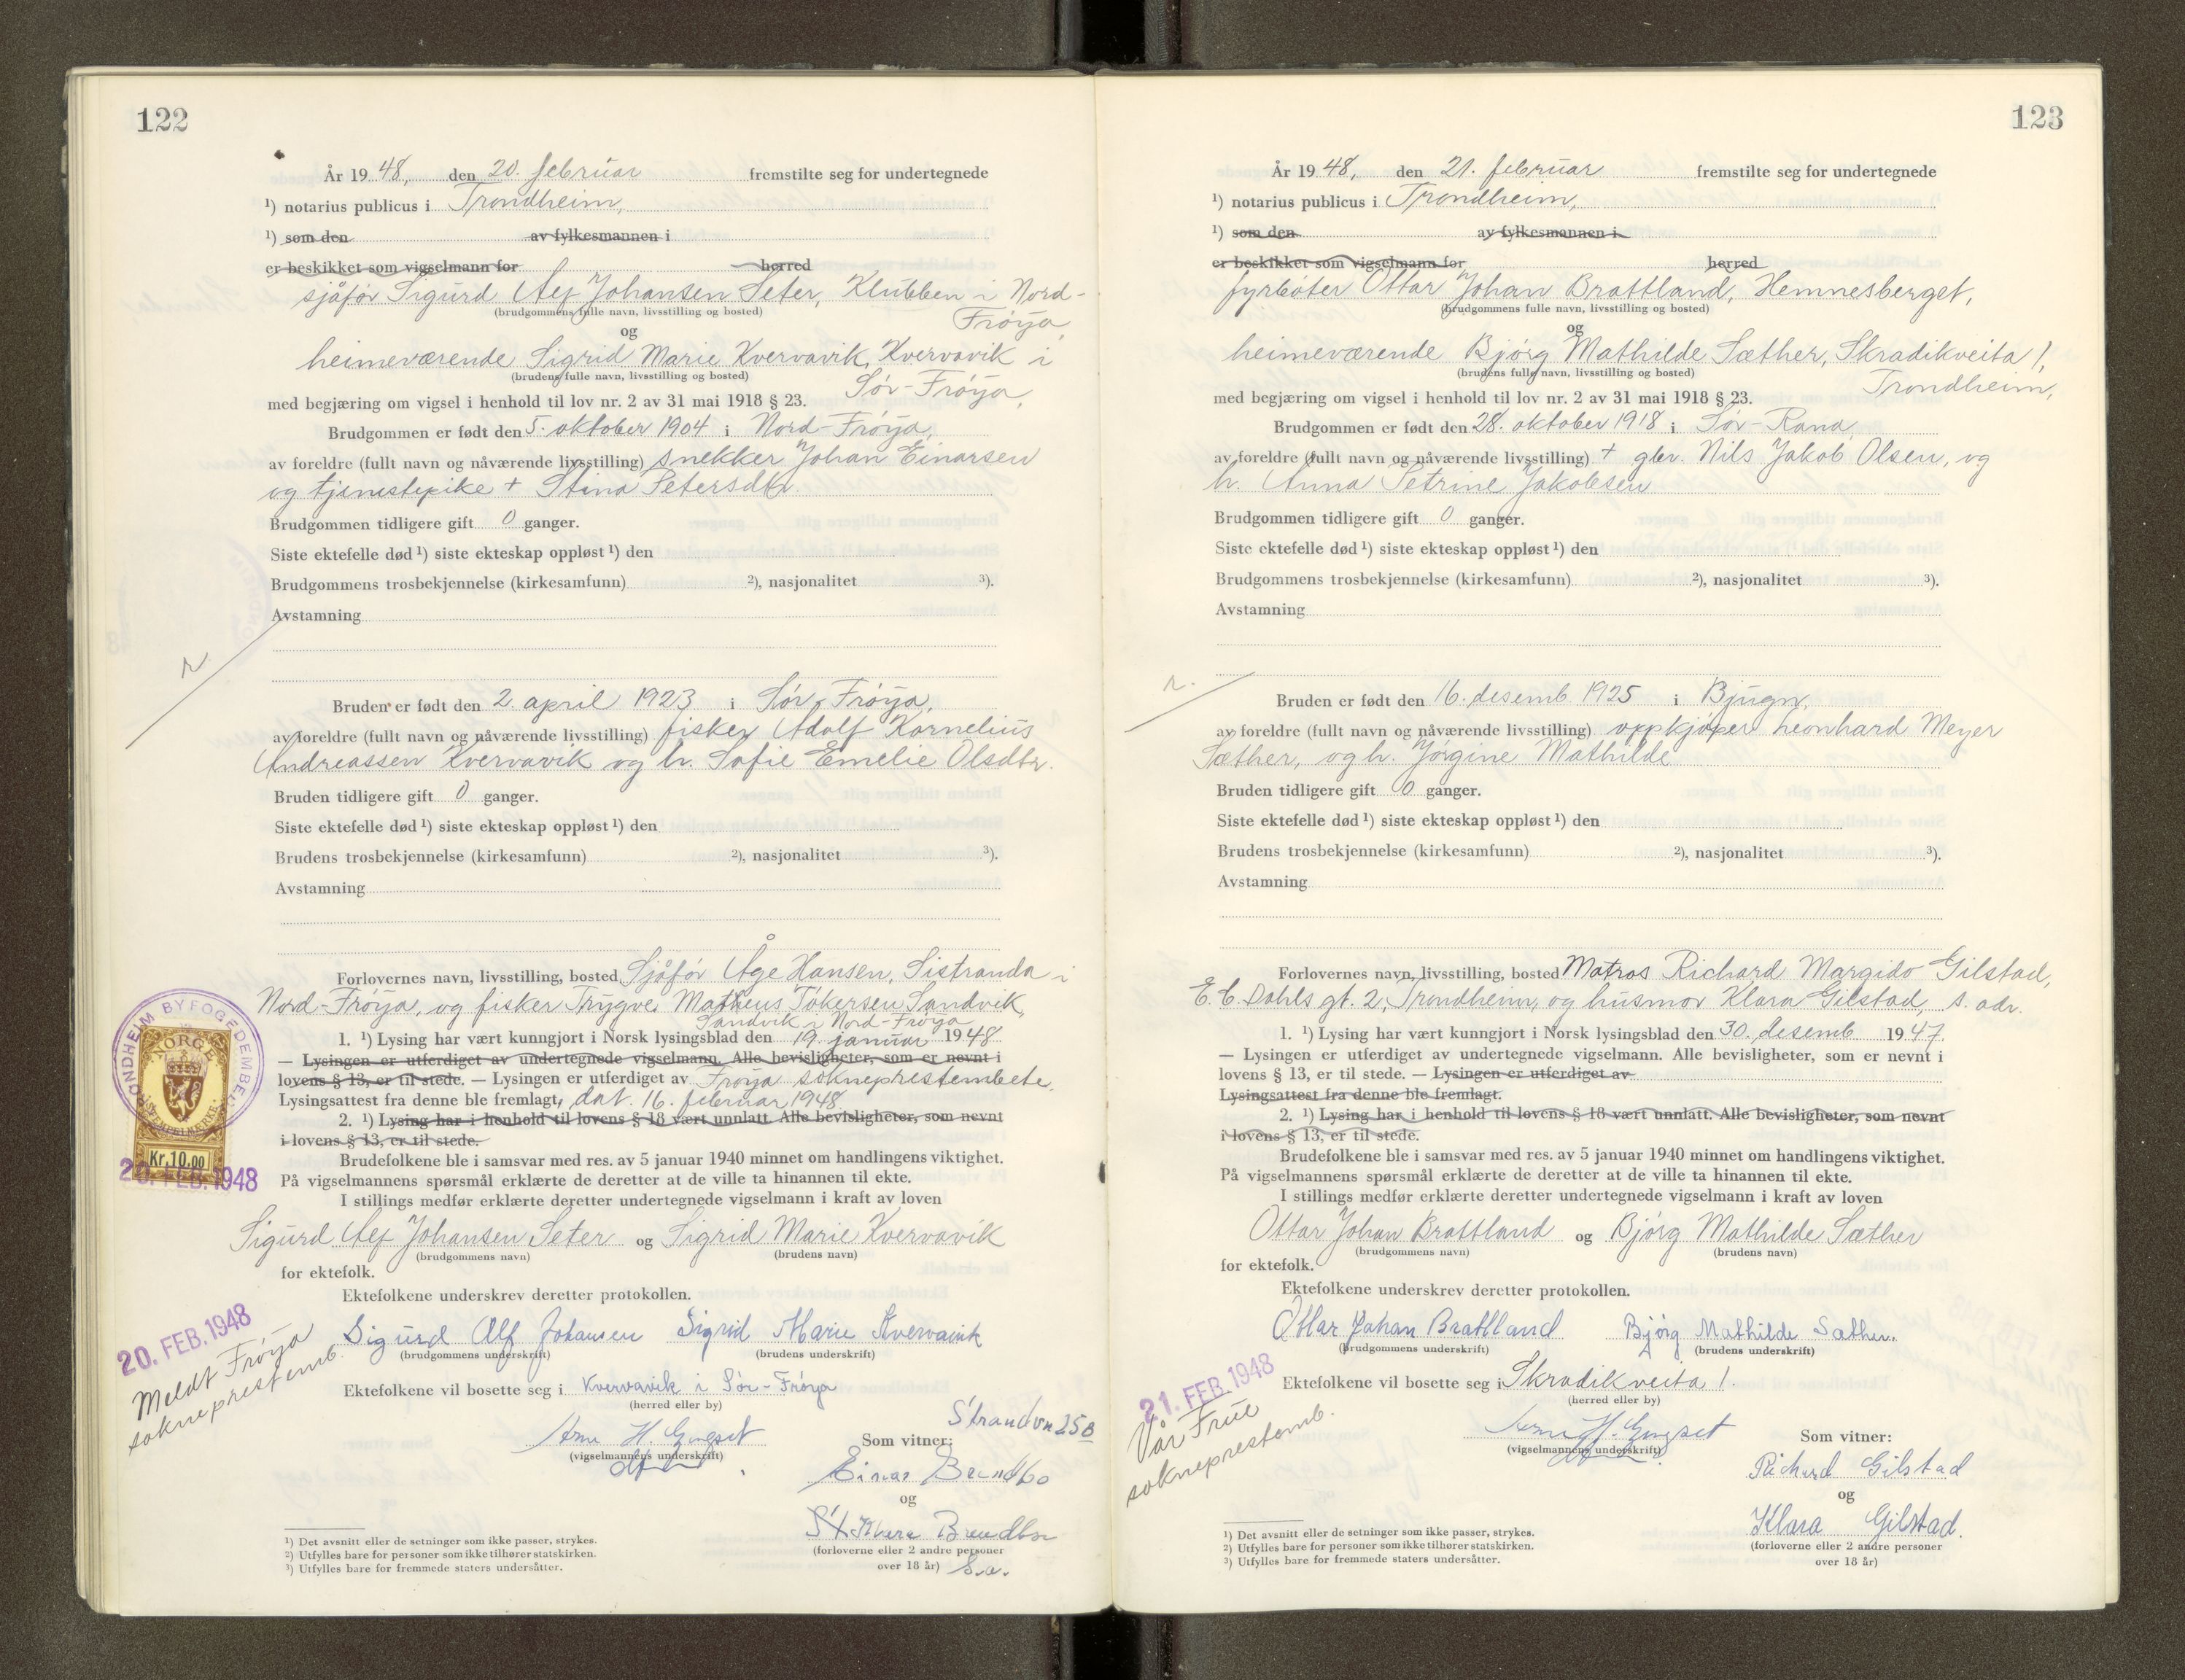 122
År 1948, den 20. februar fremstilte seg for undertegnede
¹) notarius publicus i Trondheim,
¹) som den av fylkesmannen i
er beskikket som vigselmann for herred
sjåfør Sigurd Alf Johansen Seter, Klubben i Nord-
(brudgommens fulle navn, livsstilling og bosted)
Frøya,
og
heimeværende Sigrid Marie Kvervavik, Kvervavik i
(brudens fulle navn, livsstilling og bosted)
Sør-Frøya,
med begjæring om vigsel i henhold til lov nr. 2 av 31 mai 1918 § 23.
Brudgommen er født den 5. oktober 1904 i Nord-Frøya,
av foreldre (fullt navn og nåværende livsstilling) snekker Johan Einarsen
og tjenestepike + Stina Petersdtr.
Brudgommen tidligere gift 0 ganger.
Siste ektefelle død ¹) siste ekteskap oppløst ¹) den
Brudgommens trosbekjennelse (kirkesamfunn) ²), nasjonalitet ³).
Avstamning
r.
Bruden er født den 2. april 1923 i Sør-Frøya,
av foreldre (fullt navn og nåværende livsstilling) fisker Adolf Kornelius
Andreassen Kvervavik og h. Sofie Emelie Olsdtr.
Bruden tidligere gift 0 ganger.
Siste ektefelle død ¹) siste ekteskap oppløst ¹) den
Brudens trosbekjennelse (kirkesamfunn) ²), nasjonalitet ³).
Avstamning
Forlovernes navn, livsstilling, bosted Sjåfør Åge Hansen, Sistranda i
Nord-Frøya, og fisker Trygve Matheus Tøkersen Sandvik,
Sandvik i Nord-Frøya
1. ¹) Lysing har vært kunngjort i Norsk lysingsblad den 19. januar 1948
— Lysingen er utferdiget av undertegnede vigselmann. Alle bevisligheter, som er nevnt i
lovens § 13, er til stede. — Lysingen er utferdiget av Frøya sokneprestembete.
Lysingsattest fra denne ble fremlagt, dat. 16. februar 1948
2. ¹) Lysing har i henhold til lovens § 18 vært unnlatt. Alle bevisligheter, som nevnt
i lovens § 13, er til stede.
TRONDHEIM BYFOGEDEMBEDE
NORGE
STEMPELMERKE
Kr. 10.00
20. FEB. 1948
Brudefolkene ble i samsvar med res. av 5 januar 1940 minnet om handlingens viktighet.
På vigselmannens spørsmål erklærte de deretter at de ville ta hinannen til ekte.
I stillings medfør erklærte deretter undertegnede vigselmann i kraft av loven
Sigurd Alf Johansen Seter og Sigrid Marie Kvervavik
(brudgommens navn) (brudens navn)
for ektefolk.
Ektefolkene underskrev deretter protokollen.
Sigurd Alf Johansen Sigrid Marie Kvervavik
(brudgommens underskrift) (brudens underskrift)
20. FEB. 1948
Meldt Frøya
sokneprestemb.
Ektefolkene vil bosette seg i Kvervavik i Sør-Frøya
(herred eller by)
Strandvn 25B
Som vitner:
(vigselmannens underskrift)
Einar Brendbo
og
Brendbo
(forloverne eller 2 andre personer
over 18 år) S.a.
¹) Det avsnitt eller de setninger som ikke passer, strykes.
²) Utfylles bare for personer som ikke tilhører statskirken.
³) Utfylles bare for fremmede staters undersåtter.
123
År 1948, den 21. februar fremstilte seg for undertegnede
¹) notarius publicus i Trondheim,
¹) som den av fylkesmannen i
er beskikket som vigselmann for herred
fyrbøter Ottar Johan Brattland, Hemnesberget,
(brudgommens fulle navn, livsstilling og bosted)
og
heimeværende Bjørg Mathilde Sæther, Skradikveita 1,
(brudens fulle navn, livsstilling og bosted)
Trondheim,
med begjæring om vigsel i henhold til lov nr. 2 av 31 mai 1918 § 23.
Brudgommen er født den 28. oktober 1918 i Sør-Rana,
av foreldre (fullt navn og nåværende livsstilling) + gbr. Nils Jakob Olsen, og
h. Anna Petrine Jakobsen
Brudgommen tidligere gift 0 ganger.
Siste ektefelle død ¹) siste ekteskap oppløst ¹) den
Brudgommens trosbekjennelse (kirkesamfunn) ²), nasjonalitet ³).
Avstamning
r.
Bruden er født den 16. desemb. 1925 i Bjugn,
av foreldre (fullt navn og nåværende livsstilling) oppkjøper Leonhard Meyer
Sæther, og h. Jørgine Mathilde
Bruden tidligere gift 0 ganger.
Siste ektefelle død ¹) siste ekteskap oppløst ¹) den
Brudens trosbekjennelse (kirkesamfunn) ²), nasjonalitet ³).
Avstamning
Forlovernes navn, livsstilling, bosted Matros Richard Margido Gilstad,
E. C. Dahls gt. 2, Trondheim, og husmor Klara Gilstad, s. adr.
1. ¹) Lysing har vært kunngjort i Norsk lysingsblad den 30. desemb 1947.
— Lysingen er utferdiget av undertegnede vigselmann. Alle bevisligheter, som er nevnt i
lovens § 13, er til stede. — Lysingen er utferdiget av
Lysingsattest fra denne ble fremlagt.
2. ¹) Lysing har i henhold til lovens § 18 vært unnlatt. Alle bevisligheter, som nevnt
i lovens § 13, er til stede.
Brudefolkene ble i samsvar med res. av 5 januar 1940 minnet om handlingens viktighet.
På vigselmannens spørsmål erklærte de deretter at de ville ta hinannen til ekte.
I stillings medfør erklærte deretter undertegnede vigselmann i kraft av loven
Ottar Johan Brattland og Bjørg Mathilde Sæther
(brudgommens navn) (brudens navn)
for ektefolk.
Ektefolkene underskrev deretter protokollen.
Ottar Johan Brattland Bjørg Mathilde Sæther.
(brudgommens underskrift) (brudens underskrift)
21. FEB. 1948
Vår Frue
sokneprestemb.
Ektefolkene vil bosette seg i Skradikveita 1.
(herred eller by)
(vigselmannens underskrift)
Som vitner:
Richard Gilstad
og
Klara Gilstad.
(forloverne eller 2 andre personer
over 18 år)
¹) Det avsnitt eller de setninger som ikke passer, strykes.
²) Utfylles bare for personer som ikke tilhører statskirken.
³) Utfylles bare for fremmede staters undersåtter.